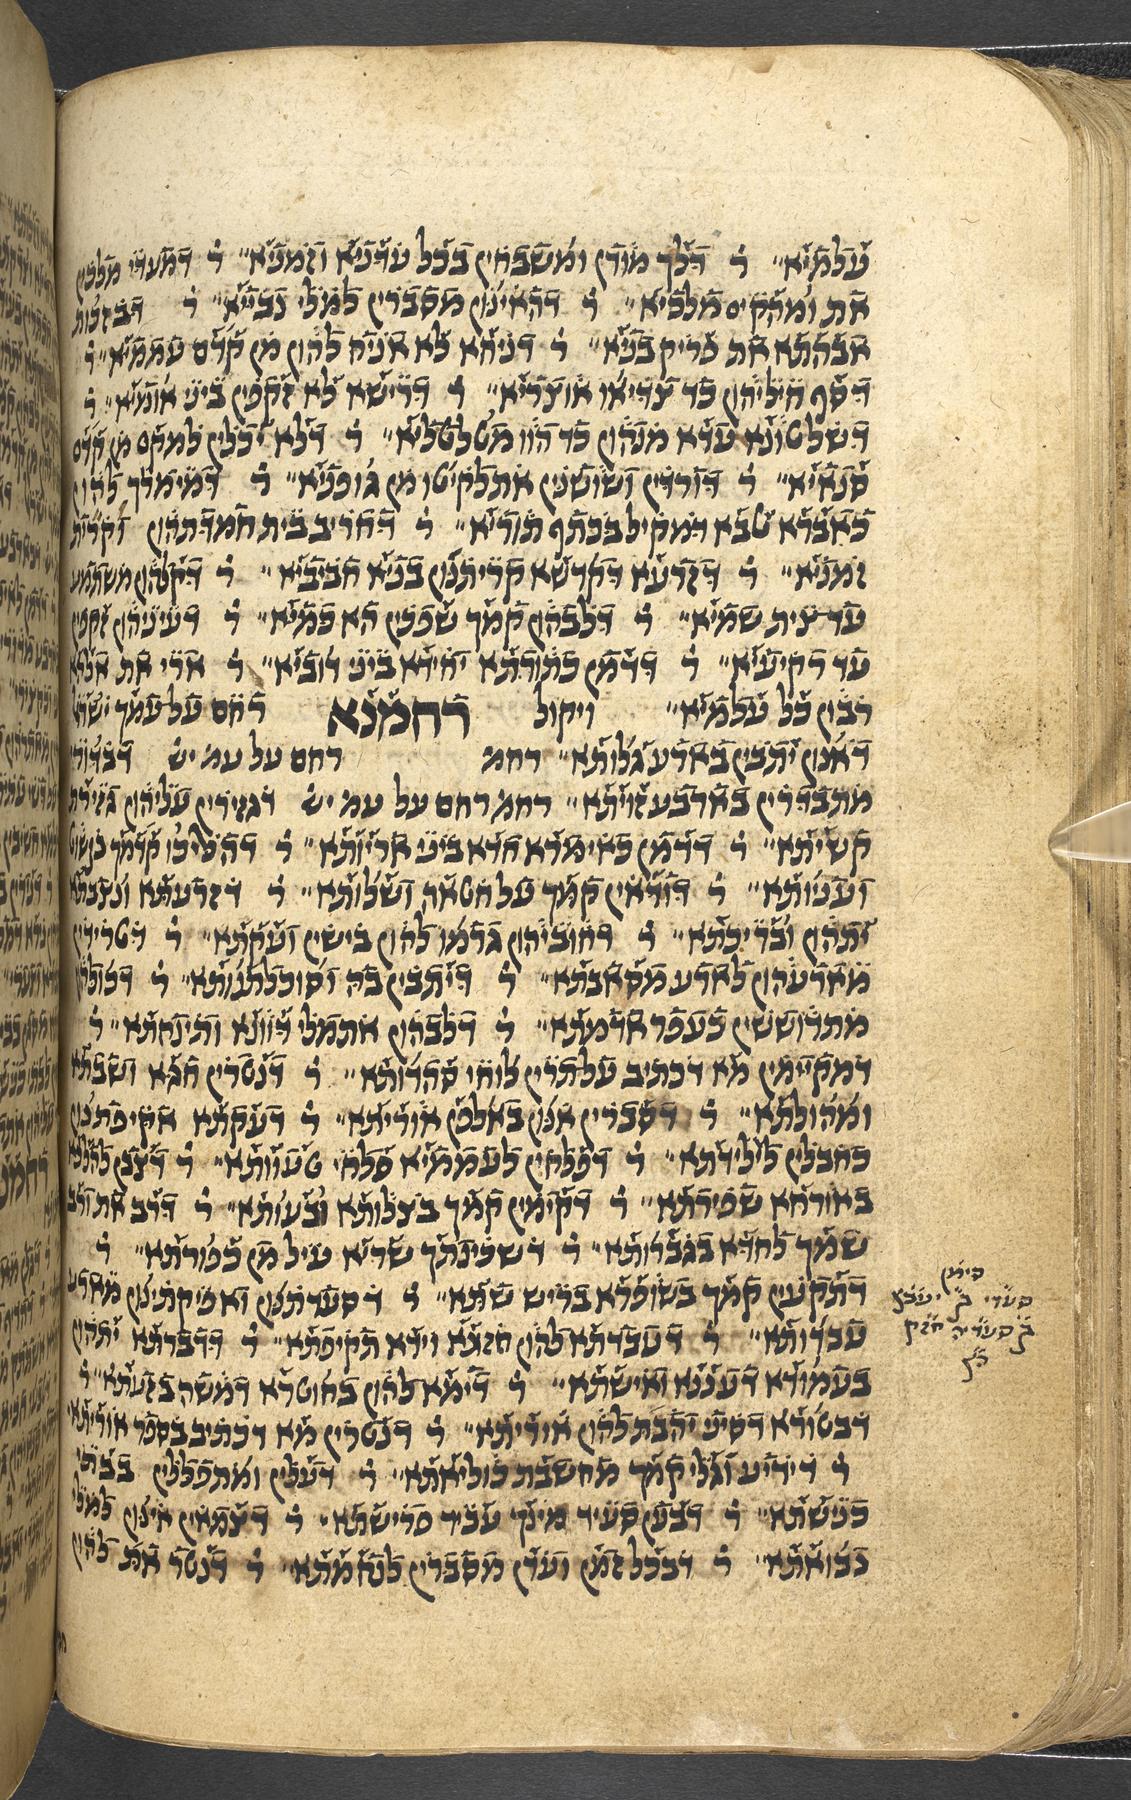 עלמיא״ ר דלך מודן ומשבחין בכל עדניא וזמניא״ ר דמעדי מלכין
את ומהקיס מלכיא״ ר דהאינון מסברין למלי נבייא״ ר דבזכות
אבהתא את פריק בניא״ ר דניחא לא אניח להון מן קדם עממיא״ ר
דסף חיליהון כד עדיאו אוצריא״ ר דרישא לא זקפין ביני אומיא״ ר
דשלטונא עדא מנהון כד הוו מטלטליא״ ר דלא יכלין למקם מן קדם
סנאיא״ ר דורדין ושושנין אתלקיטו מן גופניא״ ר דמימלך להון
כאברא טבא דמקיל בכתף תוריא״ ר דחריב בית חמדתהון וקרית
זמניא״ ר דזרעא דקדשא קריתנון בניא חביביא״ ר דקלהון משתמע
עד צית שמיא״ ר דלבהון קמך שפכין הא כמיא״ ר דעיניהון זקפין
עד רקיעיא״ ר דדמין כתורתא יחידא ביני דוביא״ ר ארי את אלהא
רבון כל עלמיא״ ויקול רחמנא רחם על עמך ישרא
דאנון יתבין בארע גלותא״ רחמ רחם על עמ׳ יש׳ דבדורי
מתבדרין בארבע זויתא״ רחמ׳ רחם על עמ׳ יש׳ דגזירין עליהון גזירת
קשיתא״ ר דדמין כאימרא חדא ביני אריותא״ ר דהליכו קדמך
וענותא״ ר דודאין קמך על חטאה ושלותא״ ר דזרעתא ונצבתא
יתהון וברייכתא״ ר דחוביהון גרמו להון בישין ועקתא״ ר דטרידין
מארעהון לארע מסאבתא״ ר דיתבין בה וסובלתנותא״ ר דכולהון
מתרוששין כעפר אדמתא״ ר דלבהון אתמלי דוונא ותינחתא״ ר
דמקיימין מא דכתיב על תרין לוחי סהדותא״ ר דנטרין חגא ושבתא
ומהולתא״ ר דסברין אנון באלפן אוריתא״ ר דעקתא אקיפתנון
כחבלין לילידתא״ ר דפלחין לעממיא פלחי טעוותא״ ר דצבן להלכא
באורחא שפירתא״ ר דקימין קמך בצלותא ובעותא״ ר דרב את ורב
שמך לחדא בגברותא״ ר דשכינתך שריא עיל מן כפורתא״ ר
דתקעין קמך בשופרא בריש שתא״ ר דסערתנון ואפיקתינון מארע
עבדותא״ ר דעבדתא להון חזונא וידא תקיפתא״ ר דדברתא יתהון
בעמודא דעננא ואישתא״ ר דימא להון בחוטרא דמשה בזעתא״ ר
דבטורא דסיני יהבת להון אוריתא״ ר דנטרין מא דכתיב בספר אוריתא
ר דידיע וגלי קמך מחשבת כוליאתא״ ר דעלין ומתפללין בבתי
כנישתא״ ר דבען סעיד מינך עביד פרישתא״ ר דצמאין אינון למלי
נבואתא״ ר דבכל זמן ועדן מסברין לנחמתא״ ר דנטר את להון
סימן
סעדי ב יעבץ
ב סעדיה חזק